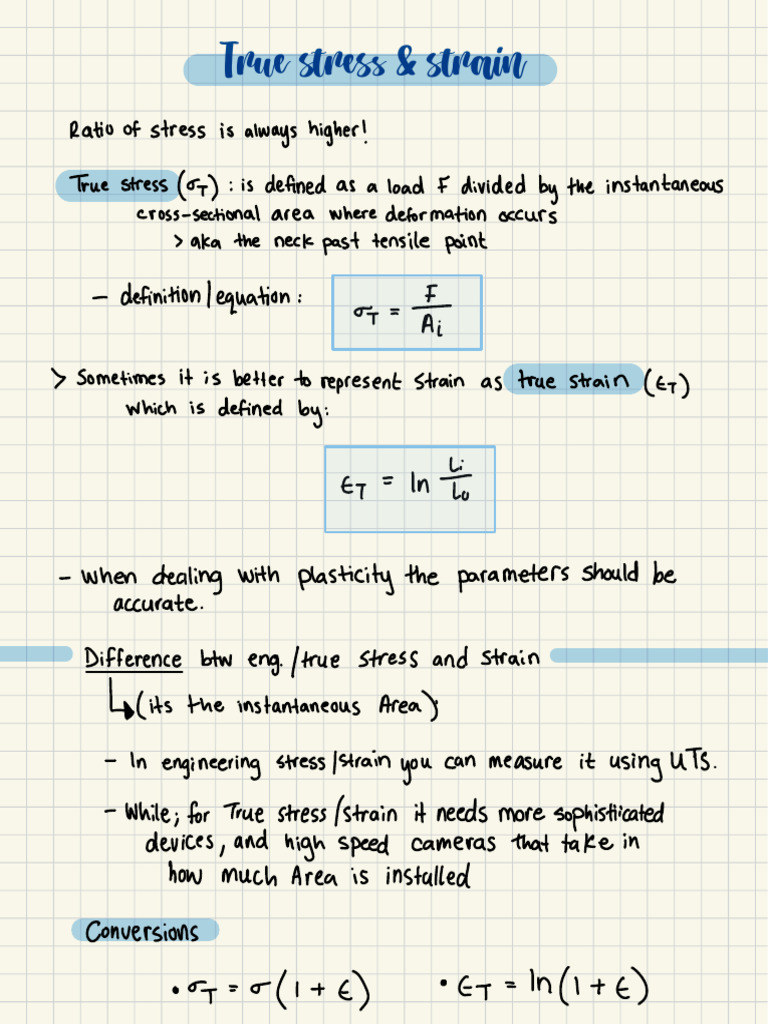 True stress & strain
Ratio of stress is always higher!
True stress (σT) : is defined as a load F divided by the instantaneous
cross-sectional area where deformation occurs
> aka the neck past tensile point
– definition/equation: σT = F / Ai
> Sometimes it is better to represent strain as true strain (ϵT)
which is defined by:
ϵT = ln Li / Lo
– when dealing with plasticity the parameters should be
accurate.
Difference btw eng./true stress and strain
↳ (its the instantaneous Area);
– In engineering stress/strain you can measure it using UTS.
– While; for True stress/strain it needs more sophisticated
devices, and high speed cameras that take in
how much Area is installed
Conversions
• σT = σ(1 + ϵ) • ϵT = ln(1 + ϵ)